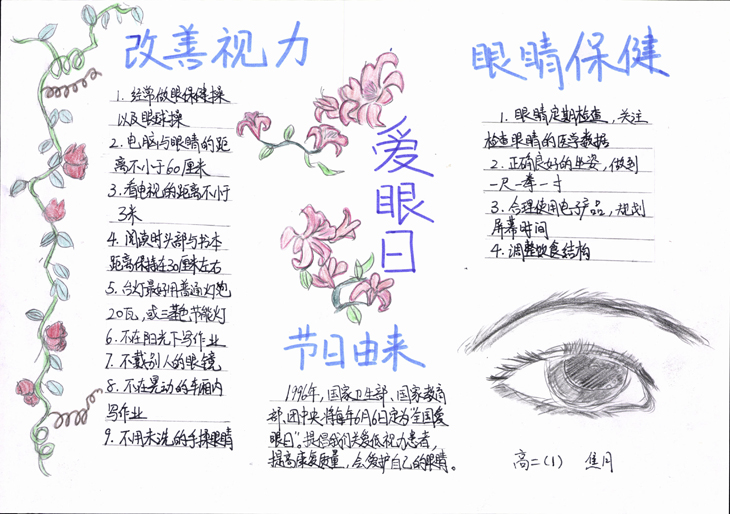 改善视力
1. 经常做眼保健操
以及眼球操
2. 电脑与眼睛的距
离不小于60厘米
3. 看电视的距离不小于
3米
4. 阅读时头部与书本
距离保持在30厘米左右
5. 台灯最好用普通灯泡
20瓦,或三基色节能灯
6. 不在阳光下写作业
7. 不戴别人的眼镜
8. 不在晃动的车厢内
写作业
9. 不用未洗的手揉眼睛
爱眼日
节日由来
1996年,国家卫生部、国家教育
部、团中央,将每年6月6日定为"全国爱
眼日"。提倡我们关爱低视力患者,
提高康复质量,会爱护自己的眼睛。
眼睛保健
1. 眼睛定期检查,关注
检查眼睛的医学数据
2. 正确良好的坐姿,做到
一尺一拳一寸
3. 合理使用电子产品,规划
屏幕时间
4. 调整饮食结构
高二(1) 焦月